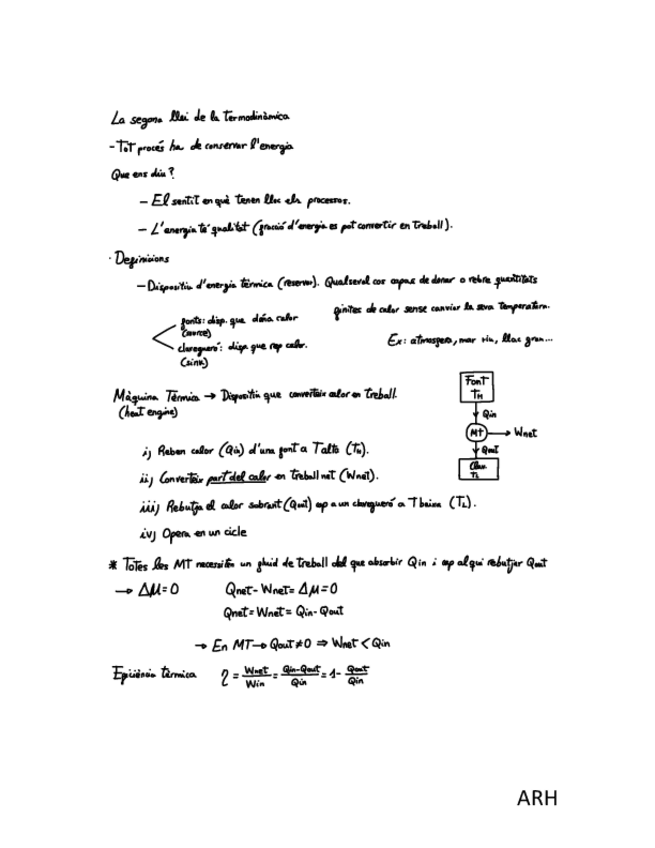 La segona llei de la Termodinàmica
- Tot procés ha de conservar l'energia
Que ens diu?
- El sentit en què tenen lloc els processos.
- L'energia té qualitat (fracció d'energia es pot convertir en treball).
· Definicions
- Dispositiu d'energia tèrmica (reservor). Qualsevol cos capaç de donar o rebre quantitats
finites de calor sense canviar la seva temperatura.
fonts: disp. que dóna calor
(source)
claregueró: disp que rep calor.
(sink)
Ex: atmosfera, mar, riu, llac gran...
Màquina Tèrmica → Dispositiu que converteix calor en treball.
(heat engine)
Font
TH
Qin
MT → Wnet
Qout
Clav.
TL
i) Reben calor (Qin) d'una font a T alta (TH).
ii) Converteix part del calor en treball net (Wnet).
iii) Rebutja el calor sobrant (Qout) cap a un claregueró a T baixa (TL).
iv) Opera en un cicle
* Totes les MT necessiten un fluid de treball del que absorbir Qin i cap al qui rebutjar Qout
→ Δμ=0 Qnet-Wnet= Δμ=0
Qnet=Wnet= Qin-Qout
→ En MT → Qout≠0 ⇒ Wnet < Qin
Eficiència tèrmica η = Wnet/Win = Qin-Qout/Qin = 1- Qout/Qin
ARH